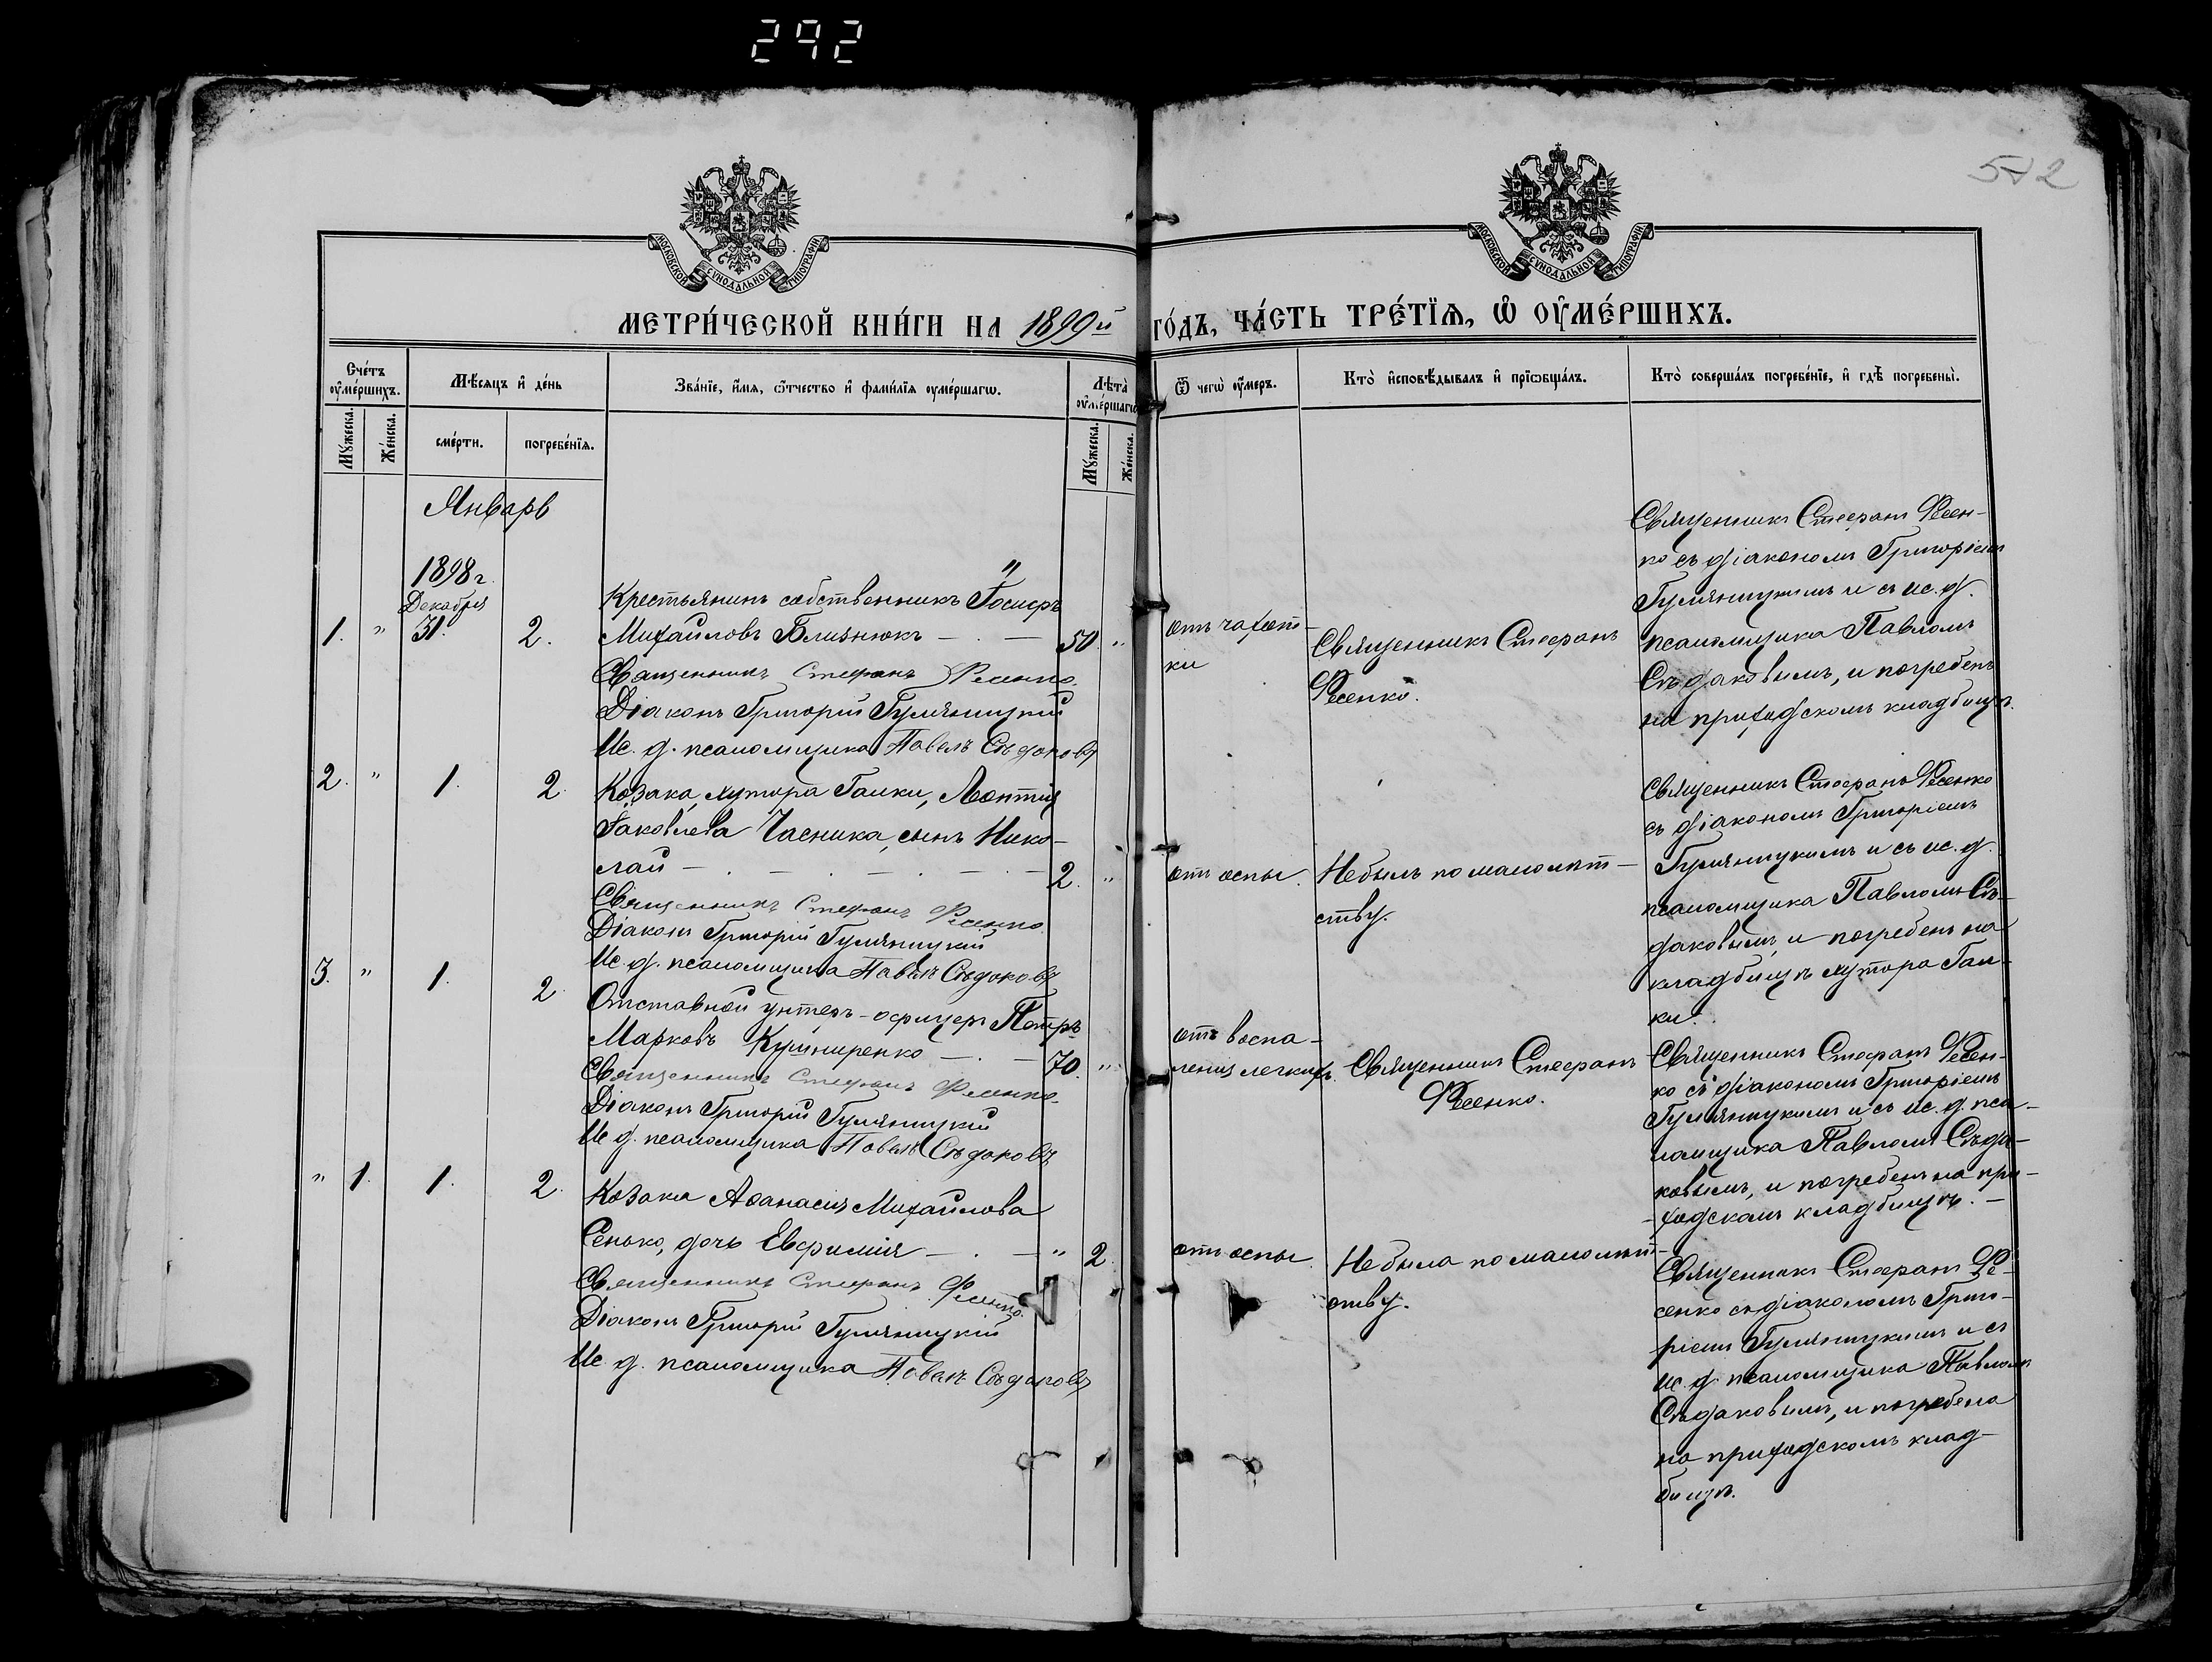 292
542
МОСКОВСКОЙ СѴНОДАЛЬНОЙ ТИПОГРАФІИ
МОСКОВСКОЙ СѴНОДАЛЬНОЙ ТИПОГРАФІИ
МЕТРИ́ЧЕСКОЙ КНИ́ГИ НА 1899й ГО́ДЪ, ЧА́СТЬ ТРЕ́ТІѦ, Ѡ҆ ОУ҆МЕ́РШИХЪ.
Сче́тъ оу҆ме́ршихъ.
Мѣ́сяцъ и҆ де́нь
Зва́нїе, и҆́мя, ѻ҆́тчество и҆ фами́лїя оуме́ршагѡ.
Лѣта̀ оу҆ме́ршагѡ
Ѿ чегѡ̀ оу҆́меръ.
Кто̀ и҆сповѣ́дывалъ и҆ прїѡбща́лъ.
Кто̀ соверша́лъ погребе́нїе, и҆ гдѣ̀ погребены̀.
Мꙋ́жеска.
Же́нска.
сме́рти.
погребе́нїя.
Мꙋ́жеска.
Же́нска.
Январь
1898 г.
Декабря
1. " 31. 2.
Крестьянинъ собственникъ Іосифъ
Михайловъ Близнюкъ — . — 50. "
Священникъ Стефанъ Фесенко.
Діаконъ Григорій Гумяницкій
Ис. д. псаломщика Павелъ Сѣдаковъ
отъ чахот-
ки
Священникъ Стефанъ
Фесенко.
Священникъ Стефанъ Фесен-
ко съ діакономъ Григоріемъ
Гумяницкимъ и съ ис. д.
псаломщика Павломъ
Сѣдаковымъ, и погребенъ
на приходскомъ кладбищѣ.
2. " 1. 2.
Козака, хутора Галки, Леонтія
Іаковлева Часника, сынъ Нико-
лай — . — . — . — . — 2. "
Священникъ Стефанъ Фесенко
Діаконъ Григорій Гумяницкій
Ис. д. псаломщика Павелъ Сѣдаковъ
отъ оспы.
Не былъ по малолѣт-
ству.
Священникъ Стефанъ Фесенко
съ діакономъ Григоріемъ
Гумяницкимъ и съ ис. д.
псаломщика Павломъ Сѣ-
даковымъ, и погребенъ на
кладбищѣ хутора Гал-
ки.
3. " 1. 2.
Отставной унтеръ-офицеръ Петръ
Марковъ Кушниренко — . — 70. "
Священникъ Стефанъ Фесенко.
Діаконъ Григорій Гумяницкій
Ис д. псаломщика Павелъ Сѣдаковъ
отъ воспа-
ленія легкихъ.
Священникъ Стефанъ
Фесенко.
Священникъ Стефанъ Фесен-
ко съ діакономъ Григоріемъ
Гумяницкимъ и съ ис. д. пса-
ломщика Павломъ Сѣда-
ковымъ, и погребенъ на при-
ходскомъ кладбищѣ. —
" 1. 1. 2.
Козака Аѳанасія Михайлова
Сенько, дочь Евфимія — . — " 2.
Священникъ Стефанъ Фесенко.
Діаконъ Григорій Гумяницкій
Ис. д. псаломщика Павелъ Сѣдаковъ
отъ оспы.
Не была по малолѣт-
ству.
Священникъ Стефанъ Фе-
сенко съ діакономъ Григо-
ріемъ Гумяницкимъ и съ
ис. д. псаломщика Павломъ
Сѣдаковымъ, и погребена
на приходскомъ клад-
бищѣ.